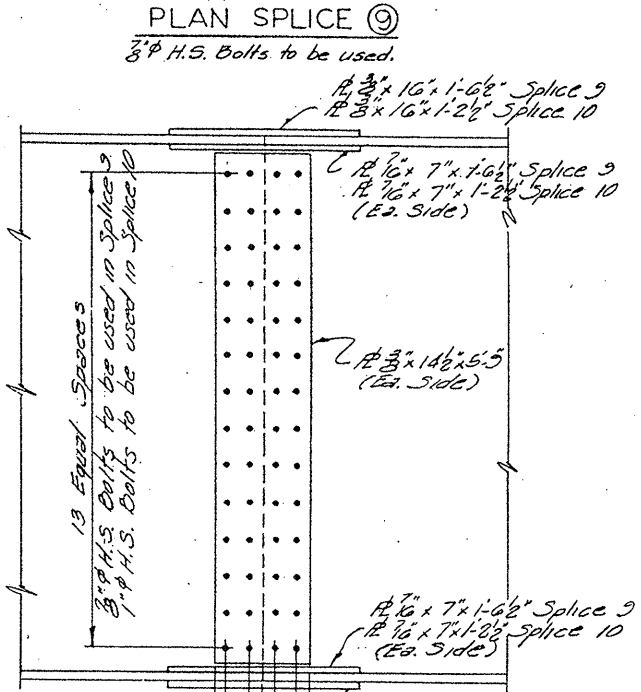 PLAN SPLICE ⑨
7/8"φ H.S. Bolts to be used.
℄ 3/8" x 16" x 1'-6 1/2" Splice 9
℄ 3/8" x 16" x 1'-2 1/2" Splice 10
℄ 7/16" x 7" x 1'-6 1/2" Splice 9
℄ 7/16" x 7" x 1'-2 1/2" Splice 10
(Ea. Side)
13 Equal Spaces
7/8"φ H.S. Bolts to be used in Splice 9
1"φ H.S. Bolts to be used in Splice 10
℄ 3/8" x 14 1/2" x 5'-5"
(Ea. Side)
℄ 7/16" x 7" x 1'-6 1/2" Splice 9
℄ 7/16" x 7" x 1'-2 1/2" Splice 10
(Ea. Side)